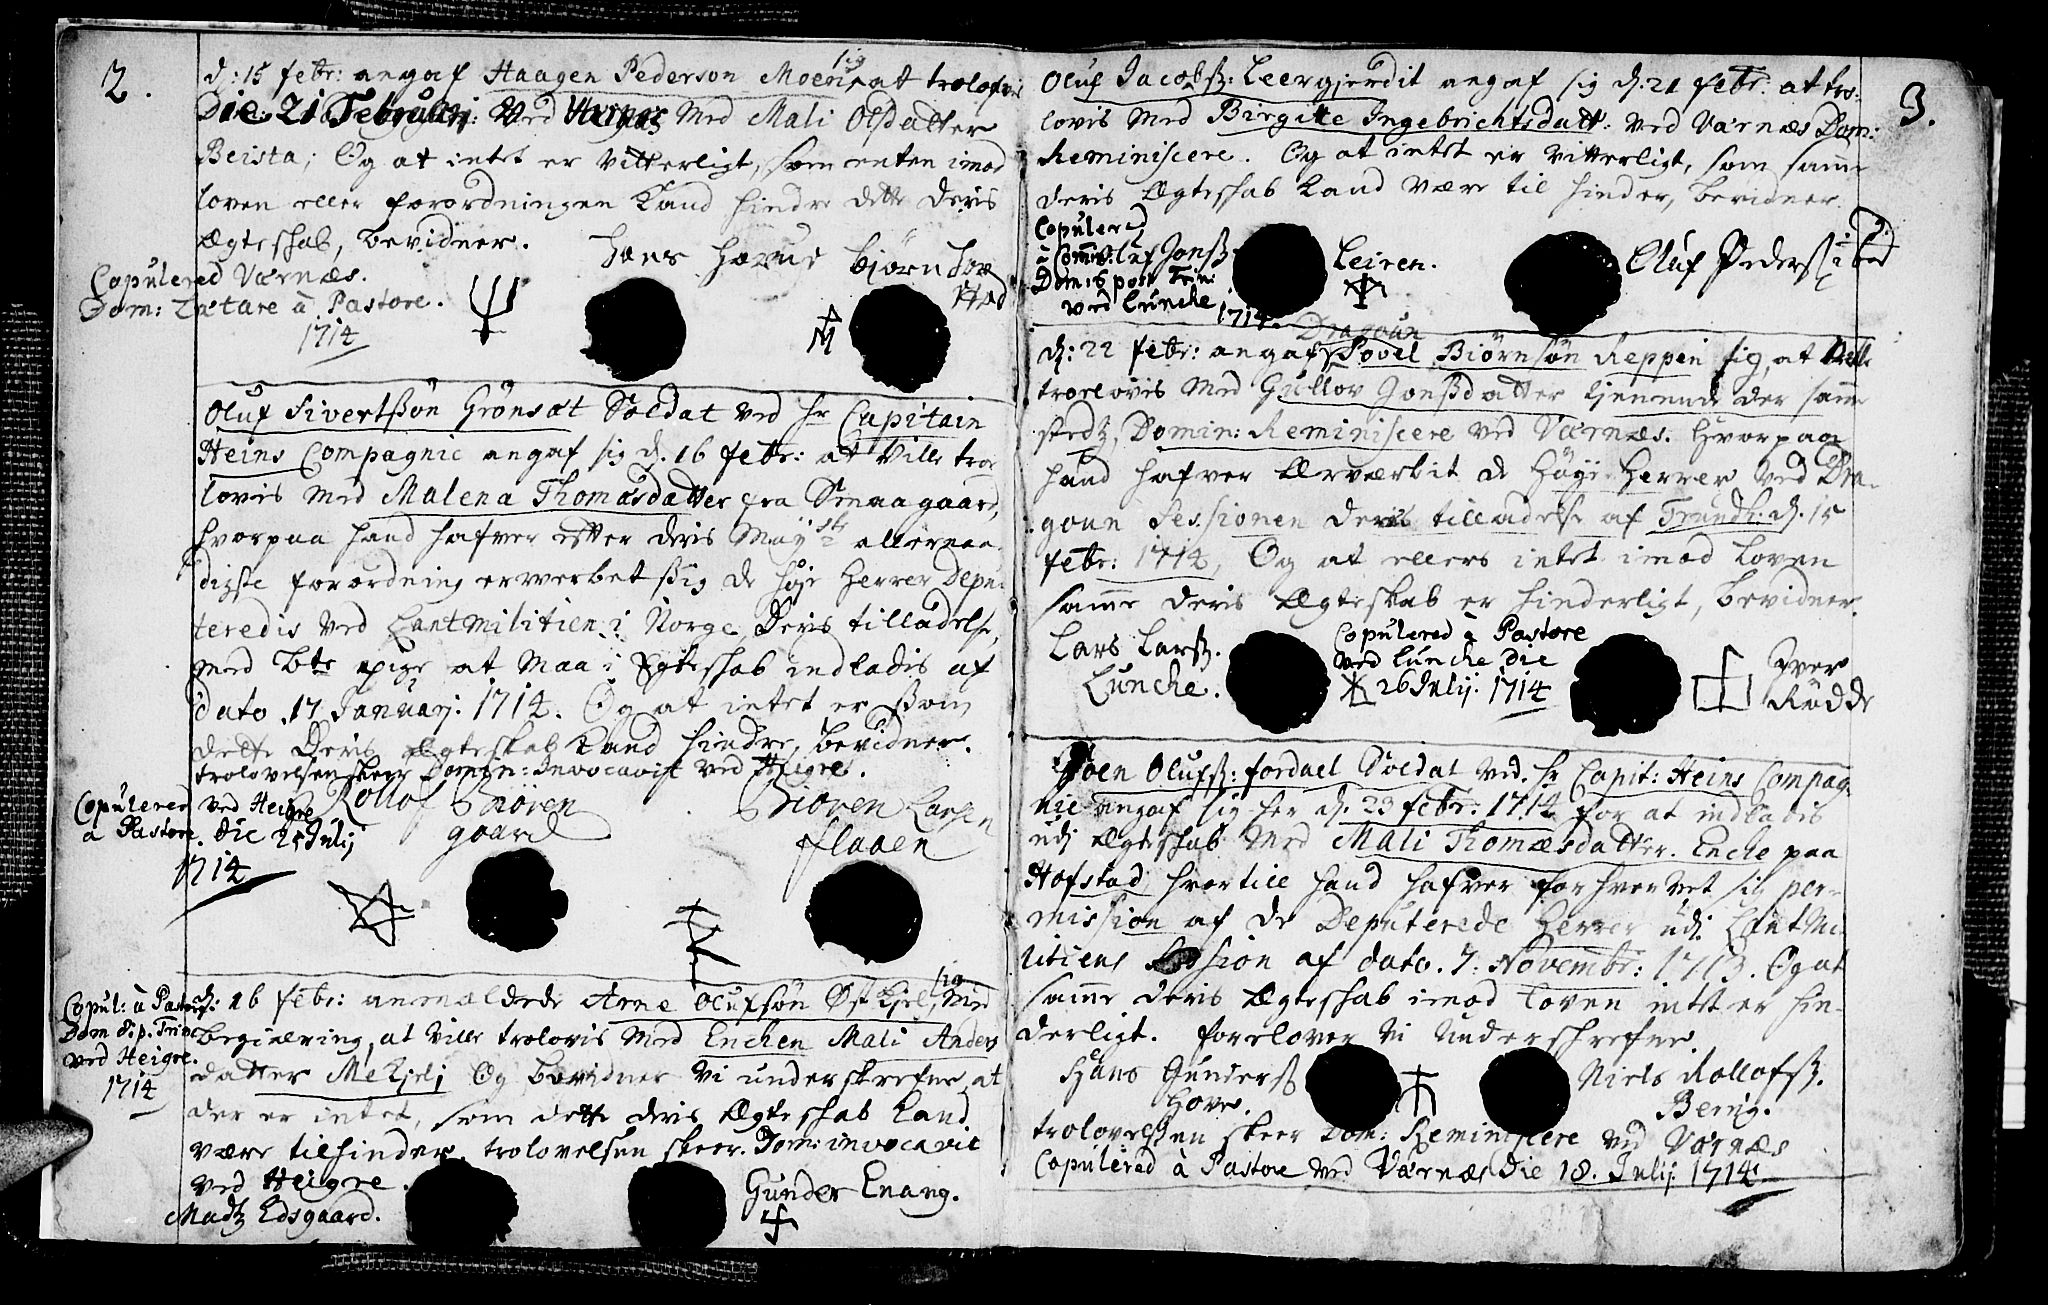 2.
d: 15 febr: angaf Haagen Pederson Moen sig at trolofvis
Die 21 Februarij: Ved Værnes Med Mali Olsdatter
Beista; Og at intet er Vitterligt, som enten imod
loven eller forordningen kand hindre dette deris
Ægteskab, bevidner.
Copulered Værnæs.
Dom: Lætare à Pastore.
1714
Oluf Sivertßön Grönsæt Soldat ved hr Capitain
Heins Compagnie angaf sig d. 16 febr: at Ville troe
lovis med Malena Thomæsdatter fra Smaagaard,
hvorpaa hand hafver efter deris Mayst allernaa
digste forordning erwerbet ßig de höje Herrer Depu-
teredis ved Lantmilitien i Norge, Deris tilladelse,
med bte pige at maa i Egteskab indladis af
dato 17 Januarj: 1714. Og at intet er ßom
dette Deris ægteskab kand hindre, bevidner.
trolovelsen skeer Domin: Invocavit ved Heigre.
Copulered ved Heigre
à Pastore. die 25 Julij
1714
Rollof
gaard
Larsen
Flaaen
Copul: à Pastore
Dom 8 p. Trin:
ved Heigre.
1714
d: 16 febr: anmældede Arne Olufsön Øst Kjel, sig Med
begiæring, at Ville trolovis med Encken Mali Anders
datter Mekjelj Og bevidner Vi underskrefne, at
der er intet, som dette deris Ægteskab kand
være tilhinder. trolovelsen skeer. Dom: invocavit
ved Heigre.
Madtz Edsgaard.
Gunder Enang.
3.
Oluf Jacobß: Leergjerdit angaf sig d. 21 febr. at tro-
lovis med Birgitte Ingebrichtsdatt: ved Værnæs Dom:
Reminiscere. Og at intet er vitterligt, som samme
deris Ægteskab kand være til hinder, bevidner
Copulered
Dom: 6 post Trin:
ved Lunche
1714.
Jonß
Leiren.
Oluf Pederß
Dragoun
d: 22 febr: angaf Povel Biörnsön Reppen sig, at
troelovis med Gullov Jonßdatter tjenende der samme
stedtz, Domin: Reminiscere ved Værnæs. hvorpaa
hand hafver erværbit de Höye Herrer ved Dra-
goun Sessionen deris tilladelse af Trundh: d. 15
febr: 1714, Og at ellers intet imod loven
samme deris Ægteskab er hinderligt, bevidner.
Lars Larß.
Lunche.
Copulered à Pastore
ved Lunche die
26 Julij. 1714
Iver
Rödde
Joen Olufß: fordael Soldat ved. hr Capit: Heins Compag-
nie angaf sig her d. 23 febr: 1714 for at indladis
udj Ægteskab med Mali Thomæsdatter. Encke paa
Hofstad hvortill hand hafver forhvervet sig per-
mission af de Deputerede Herrer udj Lantmi
litiens Session af dato. 7: Novembr: 1713. Og at
samme deris Ægteskab imod loven intet er hin-
derligt. forelover Vi Underschrefne.
Gunderß
Hove.
Niels Rollofß.
trolovelßen skeer Dom: Reminiscere ved Værnæs
Copulered à Pastore ved Værnæs Die 18. Julij 1714